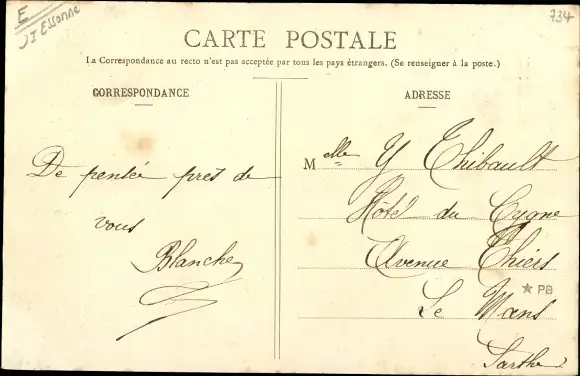 E
JI Essonne
734
CARTE POSTALE
La Correspondance au recto n'est pas acceptée par tous les pays étrangers. (Se renseigner à la poste.)
CORRESPONDANCE
De pensée près de
vous
Blanche
ADRESSE
Melle Y Thibault
Hôtel du Cygne
Avenue Thiers
Le Mans
Sarthe
★ PB